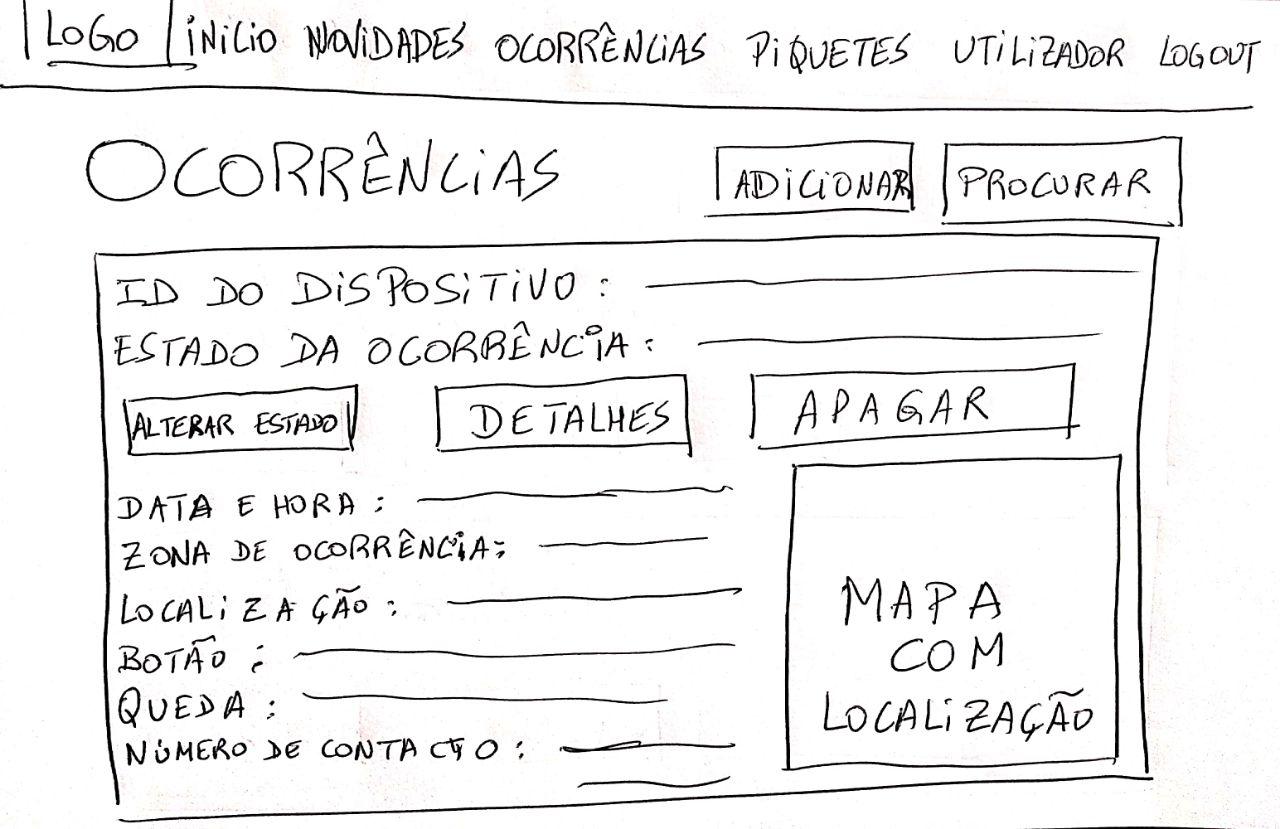 LOGO INICIO NOVIDADES OCORRÊNCIAS PIQUETES UTILIZADOR LOGOUT
OCORRÊNCIAS ADICIONAR PROCURAR
ID DO DISPOSITIVO:
ESTADO DA OCORRÊNCIA:
ALTERAR ESTADO DETALHES APAGAR
DATA E HORA:
ZONA DE OCORRÊNCIA:
LOCALIZAÇÃO:
BOTÃO:
QUEDA:
NÚMERO DE CONTACTO:
MAPA
COM
LOCALIZAÇÃO